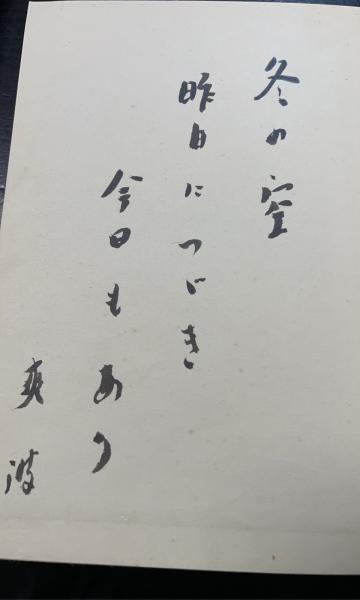 冬の空
昨日につゞき
今日もあり
爽波